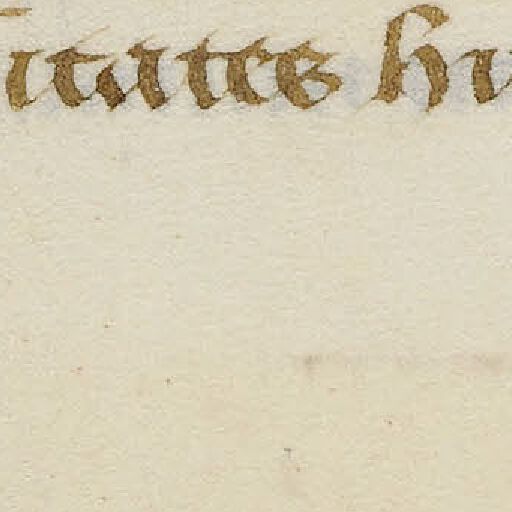 itates hu